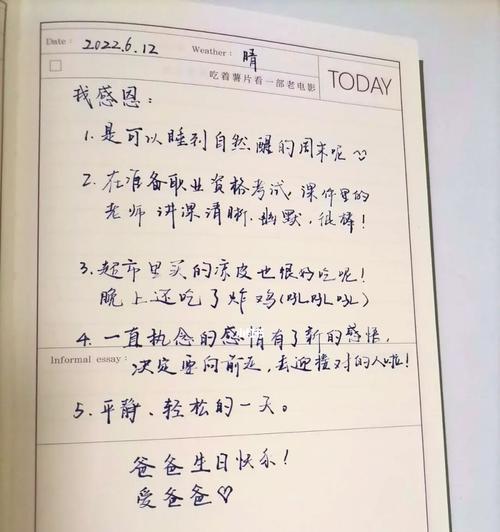 Date: 2022.6.12 Weather: 晴
吃着薯片看一部老电影
TODAY
我感恩：
1. 是可以睡到自然醒的周末呢♡
2. 在准备职业资格考试，课件里的
老师 讲课清晰、幽默，很棒！
3. 超市里买的凉皮也很好吃呢！
晚上还吃了炸鸡(叭叭叭)
4. 一直执念的感情有了新的感悟，
Informal essay:
决定要向前走，去迎接对的人啦！
5. 平静、轻松的一天。
爸爸生日快乐！
爱爸爸♡